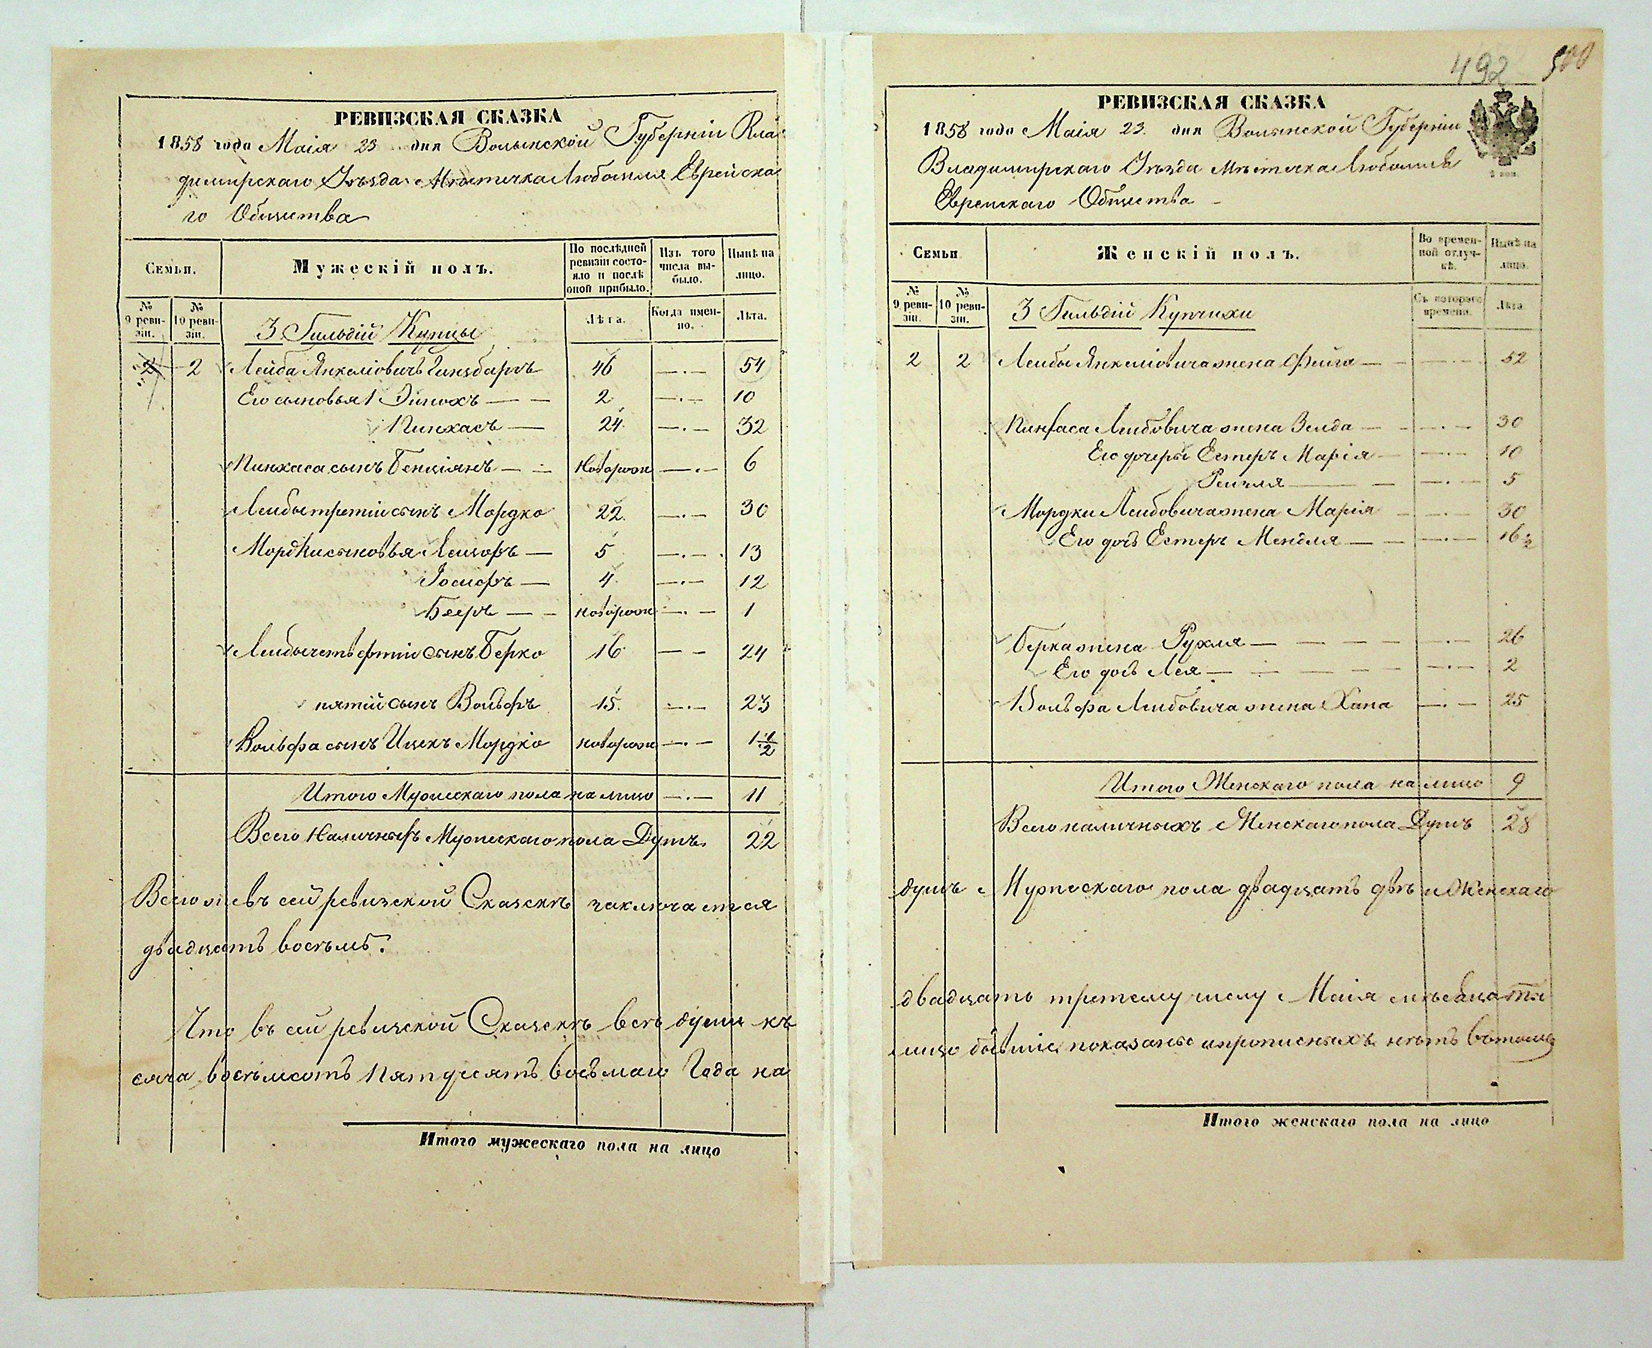 РЕВИЗСКАЯ СКАЗКА
1858 года Маія 23 дня Волынской Губерніи Вла
димирскаго Уѣзда Мѣстечка Любомля Еврейска
го Общества
Семьи.
Мужескій полъ.
По послѣдней ревизіи состояло и послѣ оной прибыло.
Изъ того числа выбыло.
Нынѣ на лицо.
№ 9 ревизіи.
№ 10 ревизіи.
3 Гильдій Купцы
Лѣта.
Когда именно.
Лѣта.
2 2 Лейба Янкеліовичъ Гинзбаргъ 46 —·— 54
Его сыновья 1 Эйнохъ — — 2 —·— 10
Пинхасъ — 24 —·— 32
Пинхаса сынъ Бенціянъ — — новорож —·— 6
Лейбы третій сынъ Мордко 22 —·— 30
Мордки сыновья Лейзоръ — 5 —·— 13
Іосифъ — 4 —·— 12
Бееръ — — новорож —·— 1
Лейбы четвертій сынъ Берко 16 — — 24
пятій сынъ Вольфъ 15 —·— 23
Вольфа сынъ Ицекъ Мордко новорож —·— 1 1/2
Итого Мужескаго пола на лицо —·— 11
Всего Наличныхъ Мужескаго пола Душъ. 22
Всего же въ сей ревизской Сказскѣ заключается
двадцать восемь.
Что въ сей ревизской Сказскѣ всѣ души къ
сяча восемсотъ пятдесятъ восьмаго Года на
Итого мужескаго пола на лицо
492 500
РЕВИЗСКАЯ СКАЗКА
1858 года Маія 23 дня Волынской Губерніи
Владимирскаго Уѣзда Мѣстечка Любомля
Еврейскаго Общества
Семьи
Женскій полъ.
Во временной отлучкѣ.
Нынѣ на лицо.
№ 9 ревизіи.
№ 10 ревизіи.
3 Гильдій Купчихи
Съ котораго времени.
Лѣта.
2 2 Лейбы Янкеліовича жена Фейга — —·— 52
Пинхаса Лейбовича жена Зелда — —·— 30
Его дочери Естеръ Марія — —·— 10
Рейзля — —·— 5
Мордки Лейбовича жена Марія — —·— 30
Его дочь Естеръ Мендля — —·— 16 1/2
Берка жена Рухля — —·— 26
Его дочь Лея — —·— 2
Вольфа Лейбовича жена Хана —·— 25
Итого Женскаго пола на лицо 9
Всего наличныхъ Женскаго пола Душъ 28
душъ Мужескаго пола двадцать двѣ и Женскаго
двадцать третему числу Маія мѣсяца ты
лицо бывшіе показаны и прописныхъ нѣтъ въ томъ
Итого женскаго пола на лицо